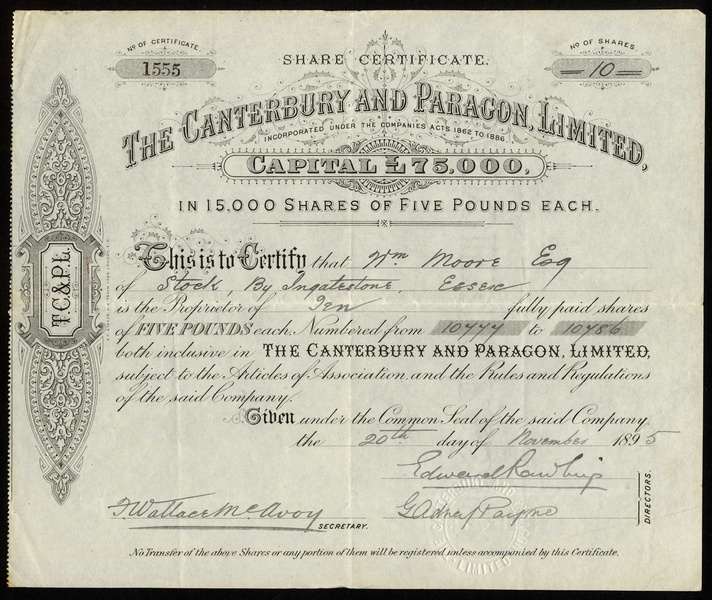 No OF CERTIFICATE.
1555
SHARE CERTIFICATE.
No OF SHARES
10
THE CANTERBURY AND PARAGON, LIMITED,
INCORPORATED UNDER THE COMPANIES ACTS 1862 TO 1886
CAPITAL £75,000,
IN 15,000 SHARES OF FIVE POUNDS EACH.
T.C.& P.L.
This is to Certify that Wm Moore Esq
of Stock, By Ingatestone. Essex
is the Proprietor of Ten fully paid shares
of FIVE POUNDS each, Numbered from 10477 to 10486
both inclusive in THE CANTERBURY AND PARAGON, LIMITED,
subject to the Articles of Association, and the Rules and Regulations
of the said Company.
Given under the Common Seal of the said Company
the 20th day of November 1895
Edward Rawlings
Wallace McAvoy SECRETARY.
G Adney Payne
DIRECTORS.
CANTERBURY AND
LIMITED
No Transfer of the above Shares or any portion of them will be registered unless accompanied by this Certificate.